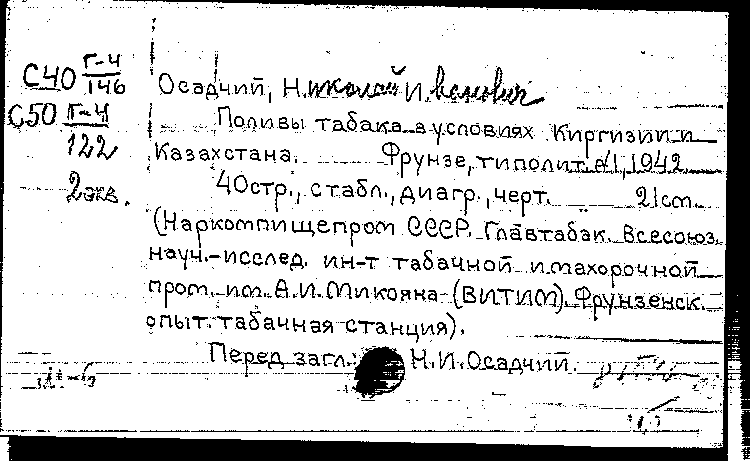 С40 Г-4/146
С50 Г-4/122
2 экз.
Осадчий, Николай Иванович
Поливы табака в условиях Киргизии и
Казахстана. Фрунзе, типолит. №1, 1942.
40стр., с табл., диагр., черт. 21см.
(Наркомпищепром СССР. Главтабак. Всесоюз.
науч.-исслед. ин-т табачной и махорочной
пром. им. А.И. Микояна (ВИТИМ). Фрунзенск.
опыт. табачная станция).
Перед загл.: Н.И.Осадчий.